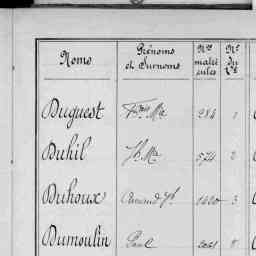 Noms Prénoms et Surnoms Nos matricules No du Vte
Duguest Fçois Mie 284 1
Duhil Jh Mie 574 2
Duhoux Armand Jh 0420 3
Dumoulin Paul 2061 8